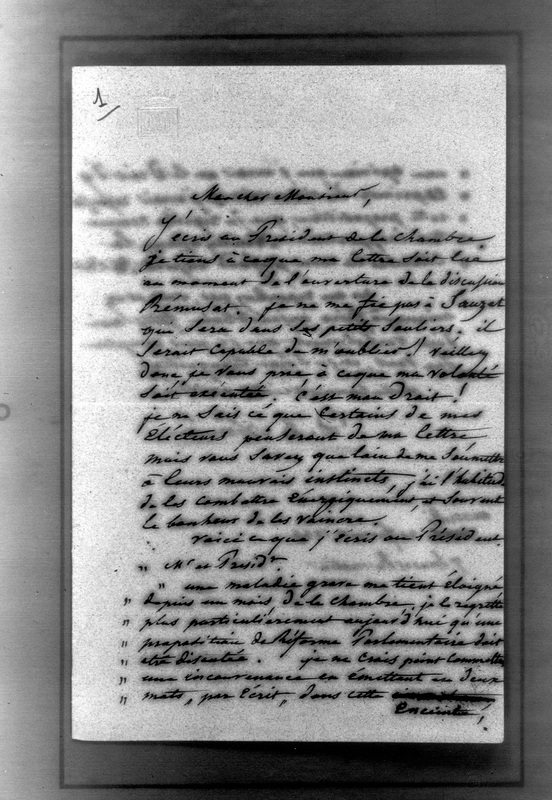 1/
Mon cher Monsieur,
J'écris au Président de la chambre.
je tiens à ce que ma lettre soit lue
au moment de l'ouverture de la discussion
Rémusat. je ne me fie pas à Sauzet
qui sera dans ses petits souliers. il
serait capable de m'oublier! veillez
donc je vous prie à ce que ma volonté
soit exécutée. C'est mon Droit!
je ne sais ce que certains de mes
Electeurs penseront de ma lettre
mais vous savez que loin de me soumettre
à leurs mauvais instincts, j'ai l'habitude
de les combattre énergiquement, et souvent
le bonheur de les vaincre.
voici ce que j'écris au Président.
" Mr le Presidt.
" une maladie grave me tient éloigné
" depuis un mois de la chambre. je le regrette
" plus particulièrement aujourd'hui qu'une
" proposition de Réforme Parlementaire doit
" être discutée. je ne crois point commettre
" une inconvenance en émettant en deux
" mots, par écrit, dans cette
Enceinte,